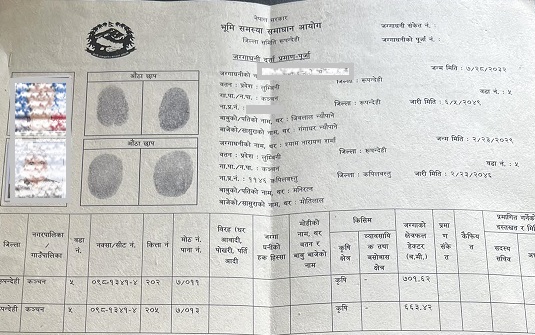 नेपाल सरकार
भूमि समस्या समाधान आयोग
जिल्ला समिति रुपन्देही
जग्गाधनी दर्ता प्रमाण-पुर्जा
जग्गाधनी संकेत नं. :
जग्गाधनीको पूर्जा नं. :
औंठा छाप
जग्गाधनीको
जन्म मिति : ७/२८/२०३२
वतन : प्रदेश : लुम्बिनी
जिल्ला : रुपन्देही
गा.पा./न.पा. : कञ्चन
वडा नं. : ५
ना.प्र.नं.
जिल्ला : रुपन्देही
जारी मिति : ६/५/२०४९
बाबु/पतिको नाम, थर : जिवलाल न्यौपाने
बाजेको/ससुराको नाम, थर : गंगाधर न्यौपाने
औंठा छाप
जग्गाधनीको नाम, थर : श्याम नारायण शर्मा
जन्म मिति : २/२३/२०२९
वतन : प्रदेश : लुम्बिनी
जिल्ला : रुपन्देही
गा.पा./न.पा. : कञ्चन
वडा नं. : ५
ना.प्र.नं. : ११४६ कपिलवस्तु
जिल्ला : कपिलवस्तु
जारी मिति : २/२३/२०४६
बाबुको/पतिको नाम, थर : मनिरत्न
बाजेको/ससुराको नाम, थर : मोतिलाल
जिल्ला
नगरपालिका / गाउँपालिका
वडा नं.
नक्सा/सीट नं.
कित्ता नं
मोठ नं. पाना नं.
विरह (घर आवादी, पोखरी, पर्ति आदी
जग्गा धनीको हक हिस्सा
मोहीको नाम, थर वतन र बाबु बाजेको नाम
किसिम
कृषि क्षेत्र
व्यावसायिक तथा बसोबास क्षेत्र
जग्गाको क्षेत्रफल हेक्टर (व.मी.)
प्रमाण संकेत
कैफियत
प्रमाणित गर्नेको दस्तखत र मिति
सदस्य सचिव
रुपन्देही कञ्चन ५ ०९८-१३४१-४ २०२ ७/०११ कृषि - ७०१.६२
रुपन्देही कञ्चन ५ ०९८-१३४१-४ २०५ ७/०१३ कृषि - ६६३.४२